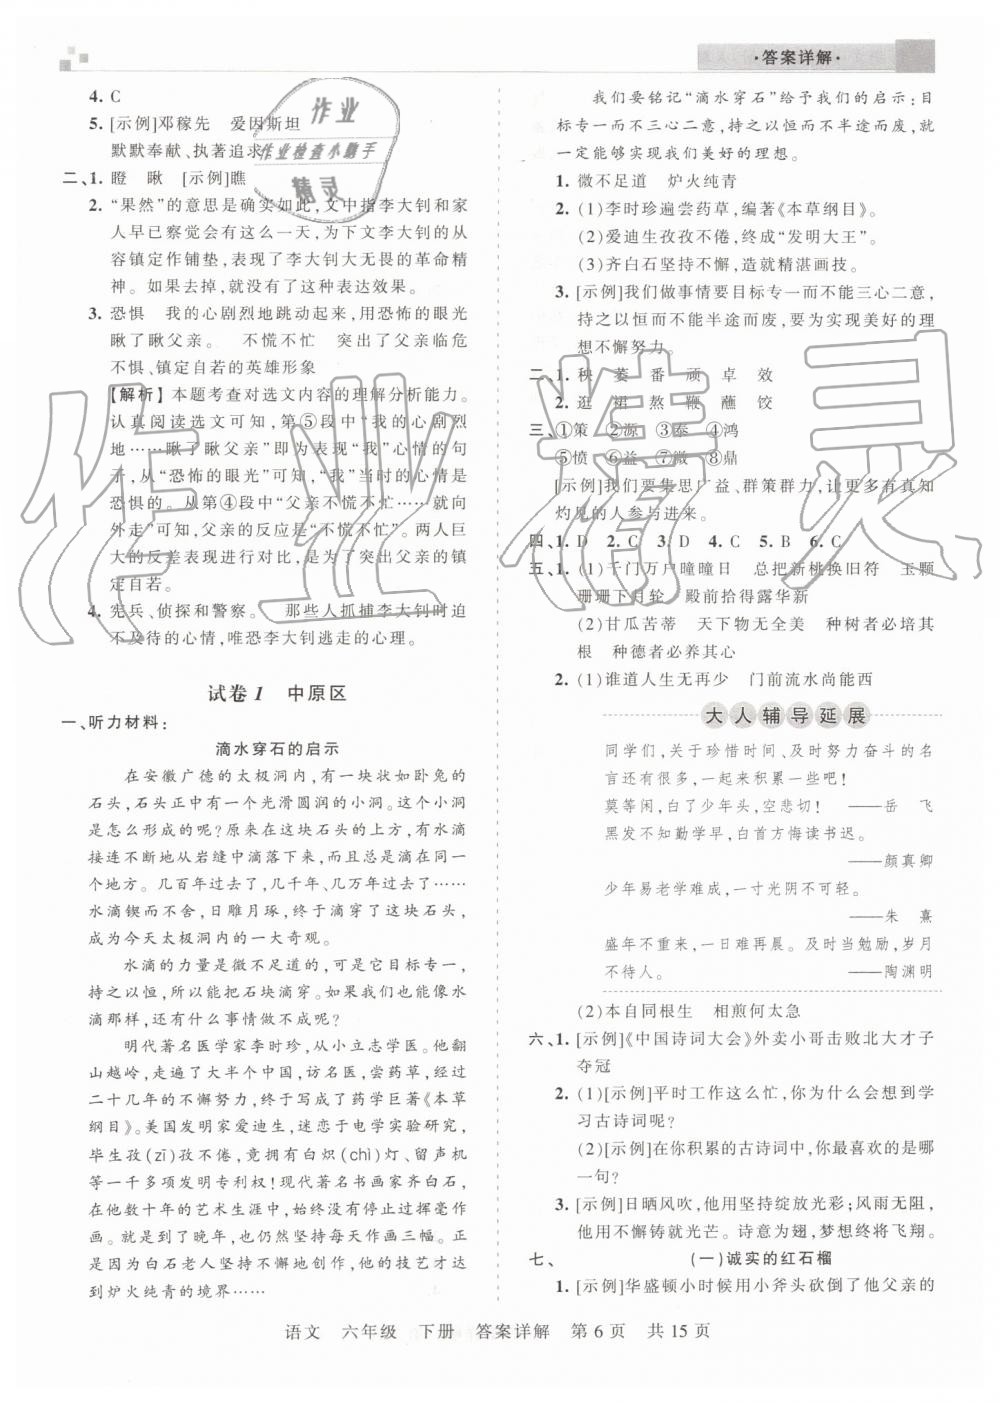 ·答案详解·
4. C
5. [示例]邓稼先　爱因斯坦
默默奉献、执著追求
二、1. 瞪　瞅　[示例]瞧
2. “果然”的意思是确实如此,文中指李大钊和家
人早已察觉会有这么一天,为下文李大钊的从
容镇定作铺垫,表现了李大钊大无畏的革命精
神。如果去掉,就没有了这种表达效果。
3. 恐惧　我的心剧烈地跳动起来,用恐怖的眼光
瞅了瞅父亲。　不慌不忙　突出了父亲临危
不惧、镇定自若的英雄形象
【解析】本题考查对选文内容的理解分析能力。
认真阅读选文可知,第⑤段中“我的心剧烈
地……瞅了瞅父亲”即为表现“我”心情的句
子,从“恐怖的眼光”可知,“我”当时的心情是
恐惧的。从第④段中“父亲不慌不忙……就向
外走”可知,父亲的反应是“不慌不忙”。两人巨
大的反差表现进行对比,突出了父亲的镇
定自若。
4. 宪兵、侦探和警察。　那些人抓捕李大钊时迫
不及待的心情,唯恐李大钊逃走的心理。
试卷1　中原区
一、听力材料：
滴水穿石的启示
在安徽广德的太极洞内,有一块状如卧兔的
石头,石头正中有一个光滑圆润的小洞。这个小洞
是怎么形成的呢?原来在这块石头的上方,有水滴
接连不断地从岩缝中滴落下来,而且总是滴在同一
个地方。几百年过去了,几千年、几万年过去了……
水滴锲而不舍,日雕月琢,终于滴穿了这块石头,
成为今天太极洞内的一大奇观。
水滴的力量是微不足道的,可是它目标专一,
持之以恒,所以能把石块滴穿。如果我们也能像水
滴那样,还有什么事情做不成呢?
明代著名医学家李时珍,从小立志学医。他翻
山越岭,走遍了大半个中国,访名医,尝药草,经过
二十几年的不懈努力,终于写成了药学巨著《本草
纲目》。美国发明家爱迪生,迷恋于电学实验研究,
毕生孜(zī)孜不倦,竟拥有白炽(chì)灯、留声机
等一千多项发明专利权!现代著名书画家齐白石,
在他数十年的艺术生涯中,始终没停止过挥毫作
画。就是到了晚年,也仍然坚持每天作画三幅。正
是因为白石老人坚持不懈地创作,他的技艺才达
到炉火纯青的境界……
我们要铭记“滴水穿石”给予我们的启示:目
标专一而不三心二意,持之以恒而不半途而废,就
一定能够实现我们美好的理想。
1. 微不足道　炉火纯青
2. (1)李时珍遍尝药草,编著《本草纲目》。
(2)爱迪生孜孜不倦,终成“发明大王”。
(3)齐白石坚持不懈,造就精湛画技。
3. [示例]我们做事情要目标专一而不能三心二意,
持之以恒而不能半途而废,要为实现美好的理
想不懈努力。
二、1. 秧　萎　番　顽　卓　效
2. 逛　裙　熬　鞭　蘸　饺
三、①策　②源　③泰　④鸿
⑤愤　⑥益　⑦微　⑧鼎
[示例]我们要集思广益、群策群力,让更多有真知
灼见的人参与进来。
四、1. D　2. C　3. D　4. C　5. B　6. C
五、1. (1)千门万户曈曈日　总把新桃换旧符　玉颗
珊珊下月轮　殿前拾得露华新
(2)甘瓜苦蒂　天下物无全美　种树者必培其
根　种德者必养其心
2. (1)谁道人生无再少　门前流水尚能西
大人辅导延展
同学们,关于珍惜时间、及时努力奋斗的名
言还有很多,一起来积累一些吧!
莫等闲,白了少年头,空悲切!　——岳　飞
黑发不知勤学早,白首方悔读书迟。
——颜真卿
少年易老学难成,一寸光阴不可轻。
——朱　熹
盛年不重来,一日难再晨。及时当勉励,岁月
不待人。　——陶渊明
(2)本自同根生　相煎何太急
六、1. [示例]《中国诗词大会》外卖小哥击败北大才子
夺冠
2. (1)[示例]平时工作这么忙,你为什么会想到学
习古诗词呢?
(2)[示例]在你积累的古诗词中,你最喜欢的是哪
一句?
3. [示例]日晒风吹,他用坚持绽放光彩;风雨无阻,
他用不懈铸就光芒。诗意为翅,梦想终将飞翔。
七、　(一)诚实的红石榴
1. [示例]华盛顿小时候用小斧头砍倒了他父亲的
语文　六年级　下册　答案详解　第6页　共15页
作业
作业检查小助手
精灵
作业精灵